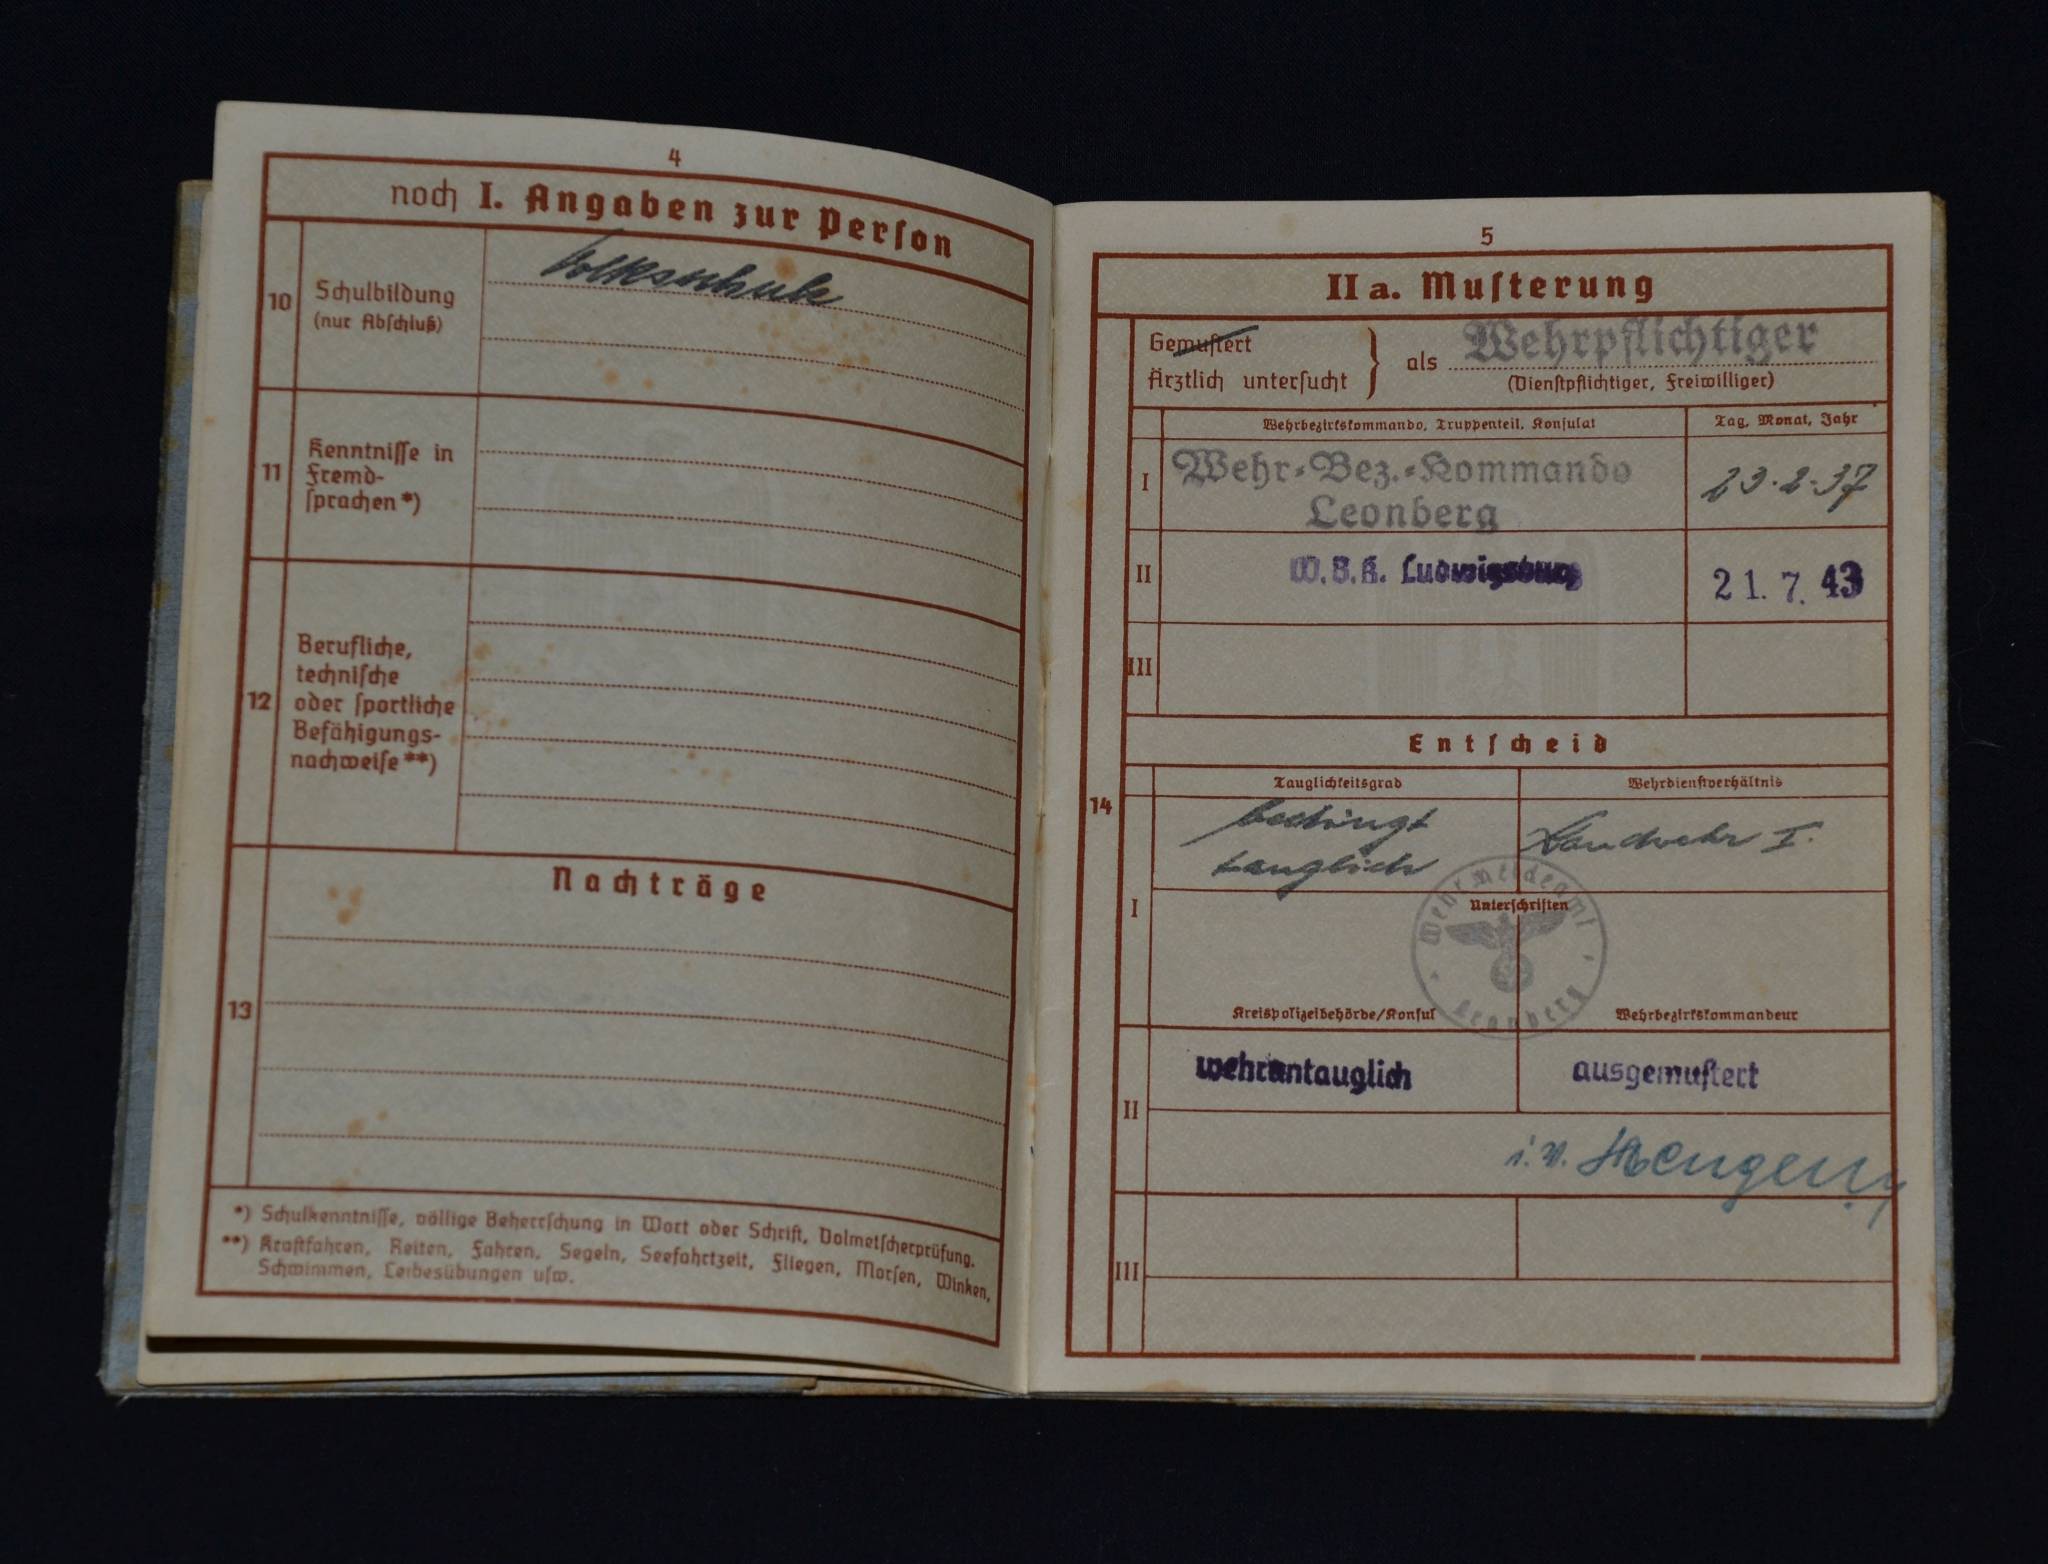 4
noch I. Angaben zur Person
10
Schulbildung
(nur Abschluß)
Volksschule
11
Kenntnisse in
Fremd-
sprachen *)
12
Berufliche,
technische
oder sportliche
Befähigungs-
nachweise **)
13
Nachträge
*) Schulkenntnisse, völlige Beherrschung in Wort oder Schrift, Dolmetscherprüfung.
**) Kraftfahren, Reiten, Fahren, Segeln, Seefahrtzeit, Fliegen, Morsen, Winken,
Schwimmen, Leibesübungen usw.
5
II a. Musterung
Gemustert
Ärztlich untersucht
als Wehrpflichtiger
(Dienstpflichtiger, Freiwilliger)
Wehrbezirkskommando, Truppenteil, Konsulat
Tag, Monat, Jahr
I
Wehr-Bez.-Kommando
Leonberg
23.2.37
II
W.B.K. Ludwigsburg
21.7.43
III
Entscheid
14
Tauglichkeitsgrad
Wehrdienstverhältnis
I
bedingt
tauglich
Landwehr I.
Wehrmeldeamt
Leonberg
Unterschriften
Kreispolizeibehörde/Konsul
Wehrbezirkskommandeur
II
wehruntauglich
ausgemustert
i.V.
III